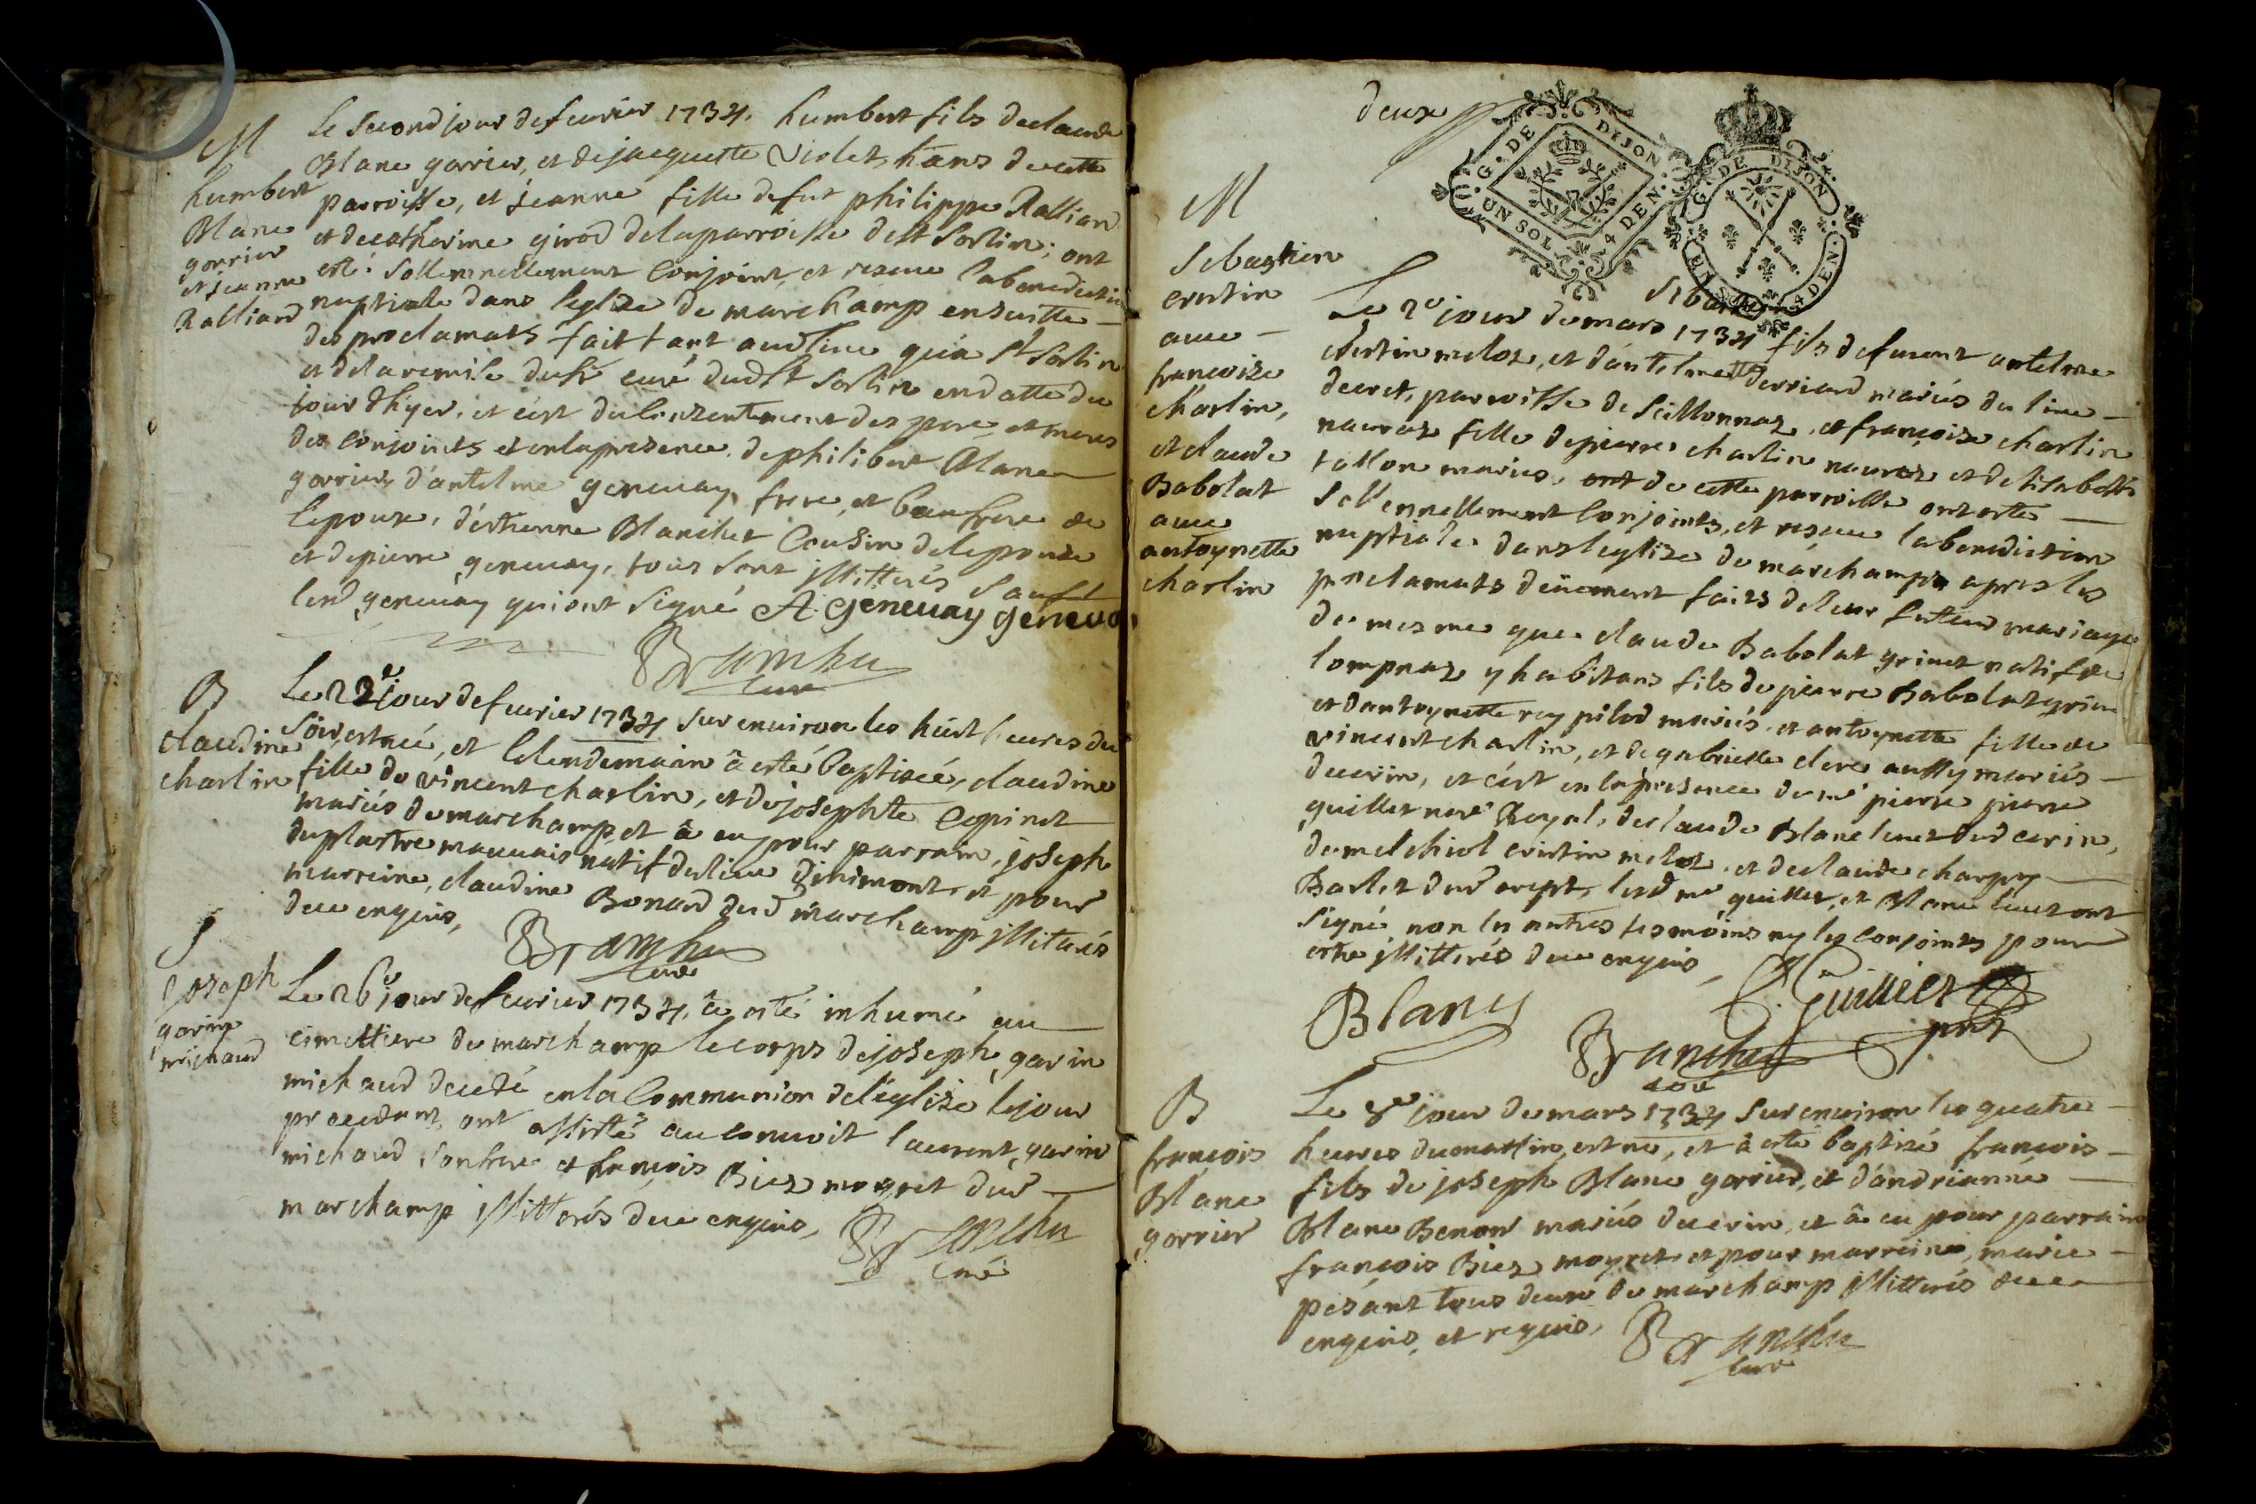 M
humbert
Blanc
gorrier
et jeanne
Ralliard
Le second jour de feuvrier 1734. humbert fils de claude
Blanc gorrier, et de jacquette Violet, hans de cette
parroisse, et jeanne fille de fut philippe Rallian
et de catherine girod de la parroisse de st Sorlin; ont
esté sollemnellement Conjoint, et receue la benediction
nuptialle dans l'eglize de marchamp ensuitte
des proclamats fait tant audt lieu qu'a st Sorlin
et de la remise du sr curé dudt st Sorlin en datte du
jour d'hyer, et c'est du Consentement des pere et meres
des conjoints et en la presence de philibert Blanc
gorrier, d'antelme genevay, frere, et beaufrere de
lepoux, d'estienne Blanchet Cousin de lepouse
et de pierre genevay, tous sont jllitterés Sauf
lesd genevay qui ont signé A. Genevay geneva
Branche
curé
B
claudine
charlin
Le 22e jour de feuvrier 1734 sur environ les huit heures du
soir, est née, et le lendemain â esté baptisée, claudine
fille de vincent charlin, et de josephte Copinet
mariés de marchamp, et â eu pour parrain, joseph
duplastre mauvais natif du lieu dinimont, et pour
marreine, claudine Bonard dud marchamp jllitterés
de ce enquis,
Branche
curé
S
joseph
garin
michaud
Le 26e jour de feuvrier 1734, â esté inhumé au
cimettiere de marchamp le corps de joseph garin
michaud decedé en la Communion de l'église le jour
precedant, ont assisté au convoit laurent garin
michaud son frere et françois Biez mogret dud
marchamp jllitterés de ce enquis,
Branche
curé
deux
G. DE DIJON
UN SOL 4 DEN.
G. DE DIJON
UN SOL 4 DEN.
M
Sebastien
cristin
avec
francoize
charlin,
et claude
Babolat
avec
antoynette
charlin
Sebastien
Le 2e jour de mars 1734 fils de furent antelme
cristin meloz, et d'antelmette derriard mariés du lieu
decret, parroisse de seillonnaz, et françoise charlin
nauraz fille de pierre charlin nauraz et de lisabette
tallon mariés, ont de cette parroisse ont esté
sollennellement Conjoints, et reçeue la benediction
nuptiale dans l'eglize de marchamp apres les
proclamats deüement faits de leur futeur mariage
de mesme que claude Babolat grinet natif de
lompnaz y habitans fils de pierre Babolat grine
et d'antoynette rey pilod mariés, et antoynette fille de
vincent charlin, et de gabrielle clerc aussy mariés
de cerin, et c'est en la presence de me pierre pierre
guillet nore Royal, de claude Blanc lieut dud cerin,
de melchiol cristin meloz, et de claude charpy
Barlet dud crept, lesd me guillet, et Blanc lieut ont
signé non les autres tesmoins ny les conjoints pour
estre jllitterés de ce enquis,
Blanc
P. Guillet
Branche
curé
B
françois
Blanc
gorrier
Le 8e jour de mars 1734 sur environ les quatre
heures du mattin, est né, et â esté baptizé françois
fils de joseph Blanc gorrier, et d'andrianne
Blanc Benon mariés de cerin, et â eu pour parrain
françois Biez mogret, et pour marreine, marie
pesant tous deux de marchamp jllitterés de ce
enquis, et requis,
Branche
curé